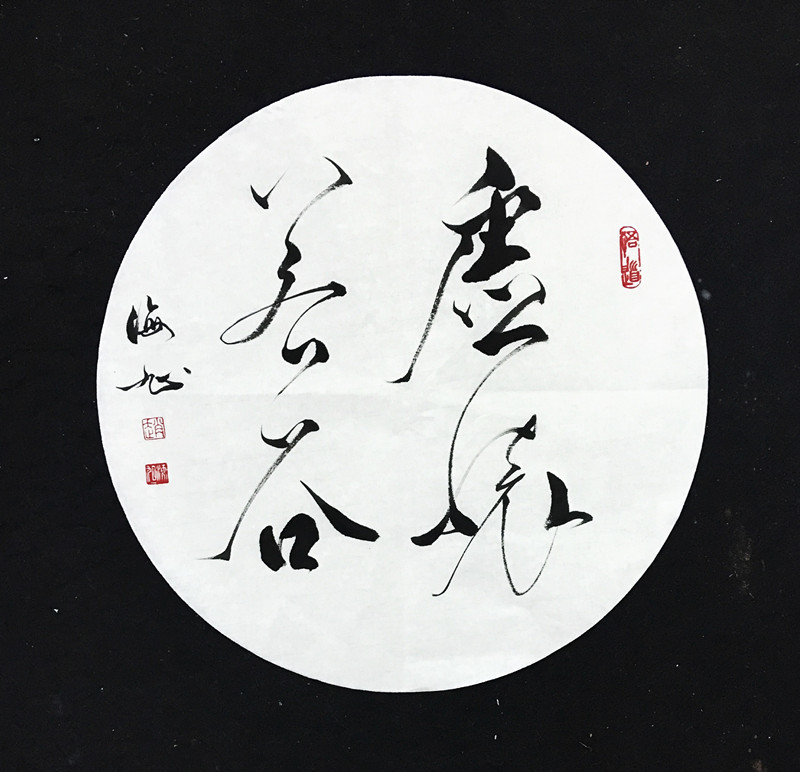 虚怀
若谷
海旭